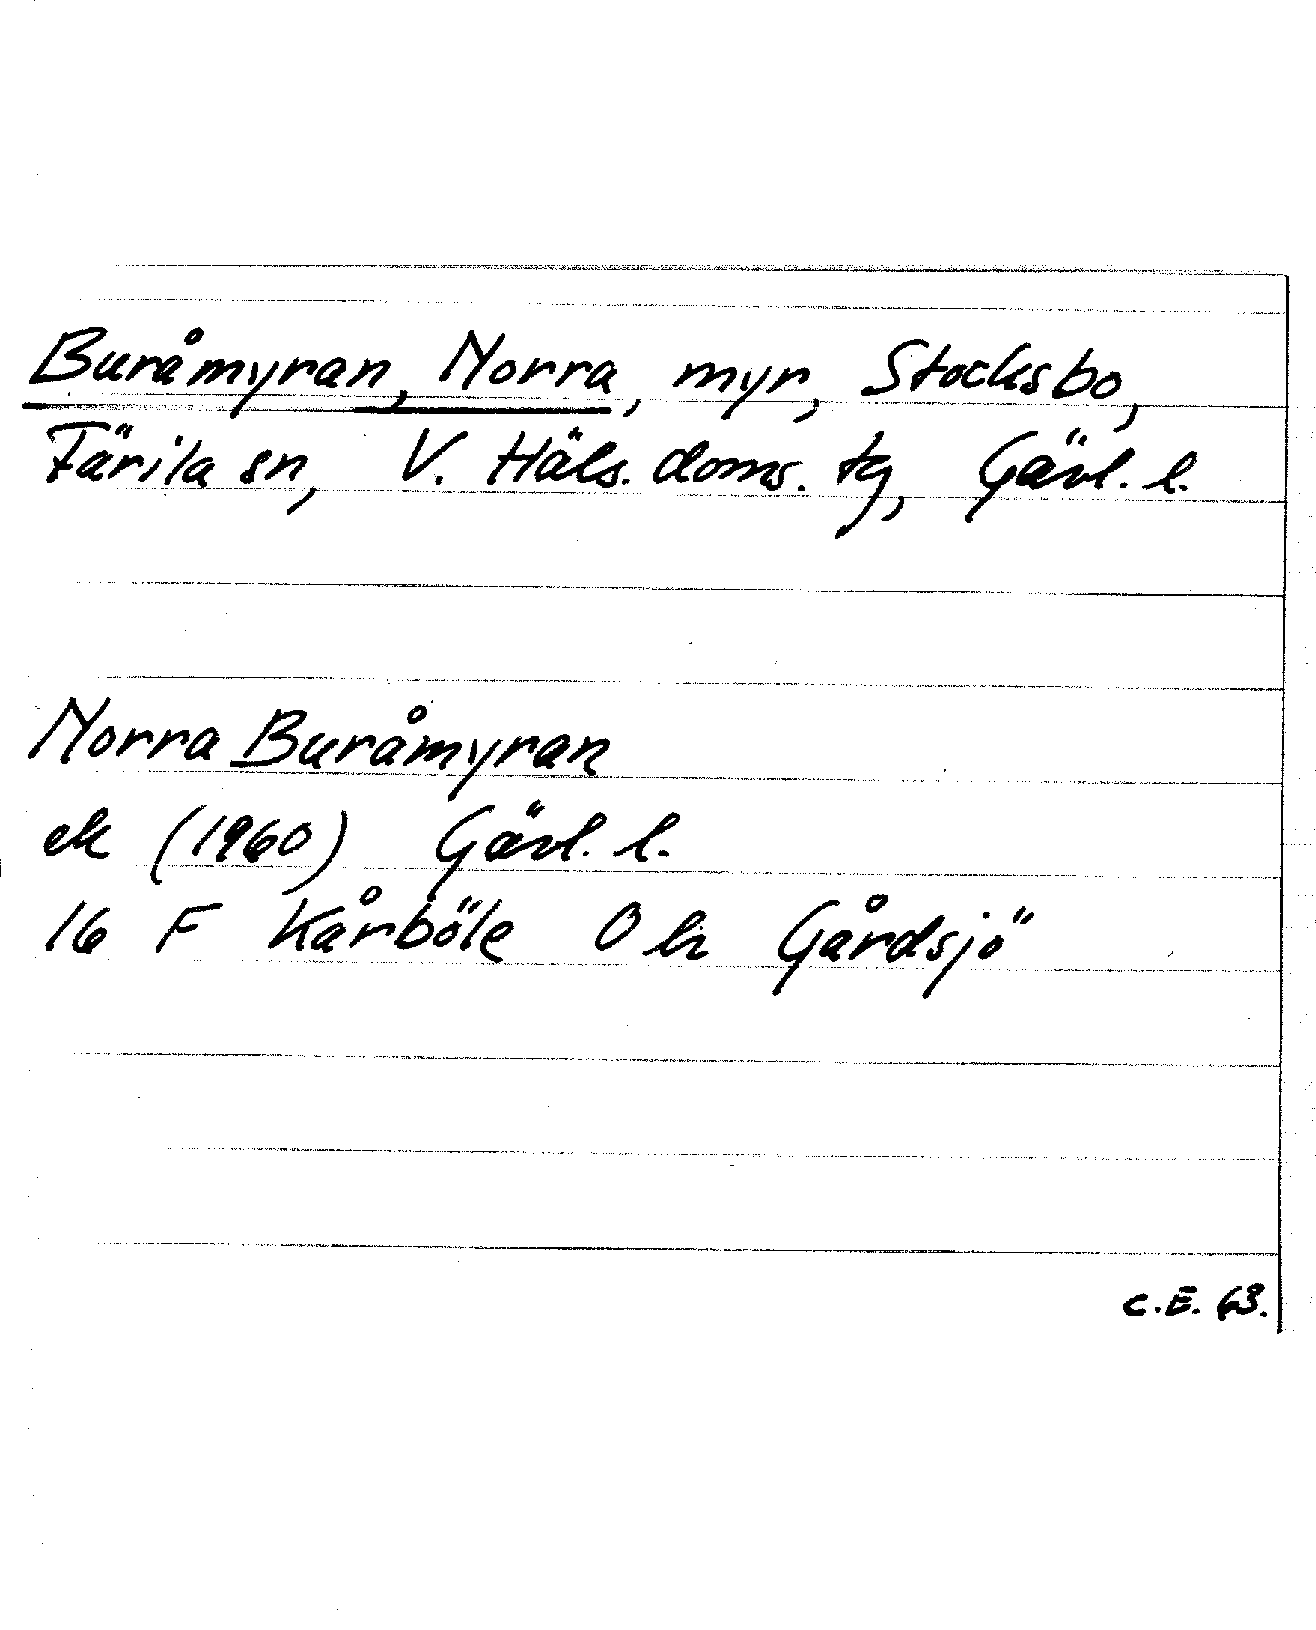 Buråmyran, Norra, myr, Stocksbo,
Färila sn, V. Häls. doms. tg, Gävl. l.
Norra Buråmyran
ek (1960) Gävl. l.
16 F Kårböle 0 h Gårdsjö
C.E. 63.